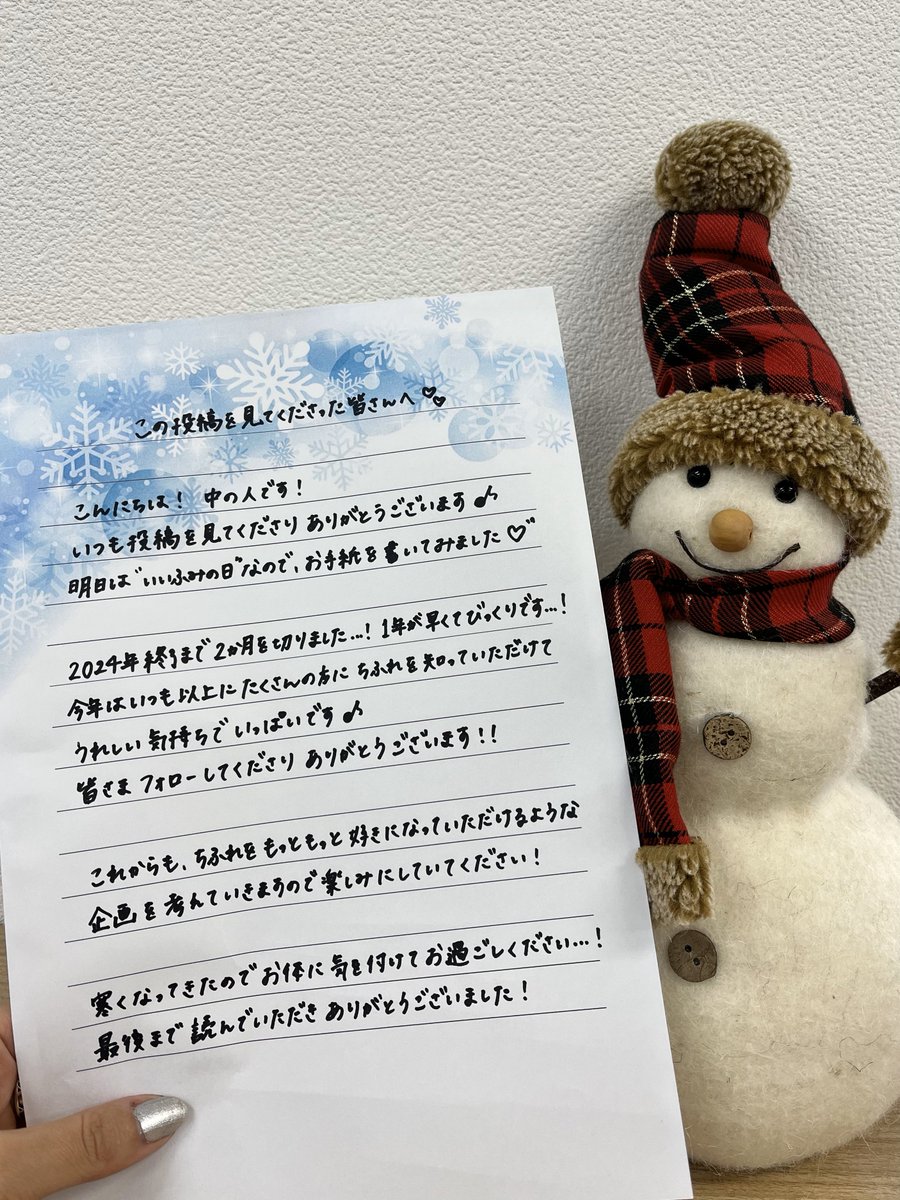 この投稿を見てくださった皆さんへ♡♡
こんにちは！ 中の人です！
いつも投稿を見てくださり ありがとうございます♪
明日は“いいふみの日”なので、お手紙を書いてみました♡
2024年終了まで 2か月を切りました…！ 1年が早くてびっくりです…！
今年はいつも以上に たくさんの方に ちふれを知っていただけて
うれしい気持ちで いっぱいです♪
皆さま フォローしてくださり ありがとうございます！！
これからも、ちふれを もっともっと 好きになっていただけるような
企画を 考えていきますので 楽しみにしていてください！
寒くなってきたので お体に 気を付けて お過ごしください…！
最後まで 読んでいただき ありがとうございました！